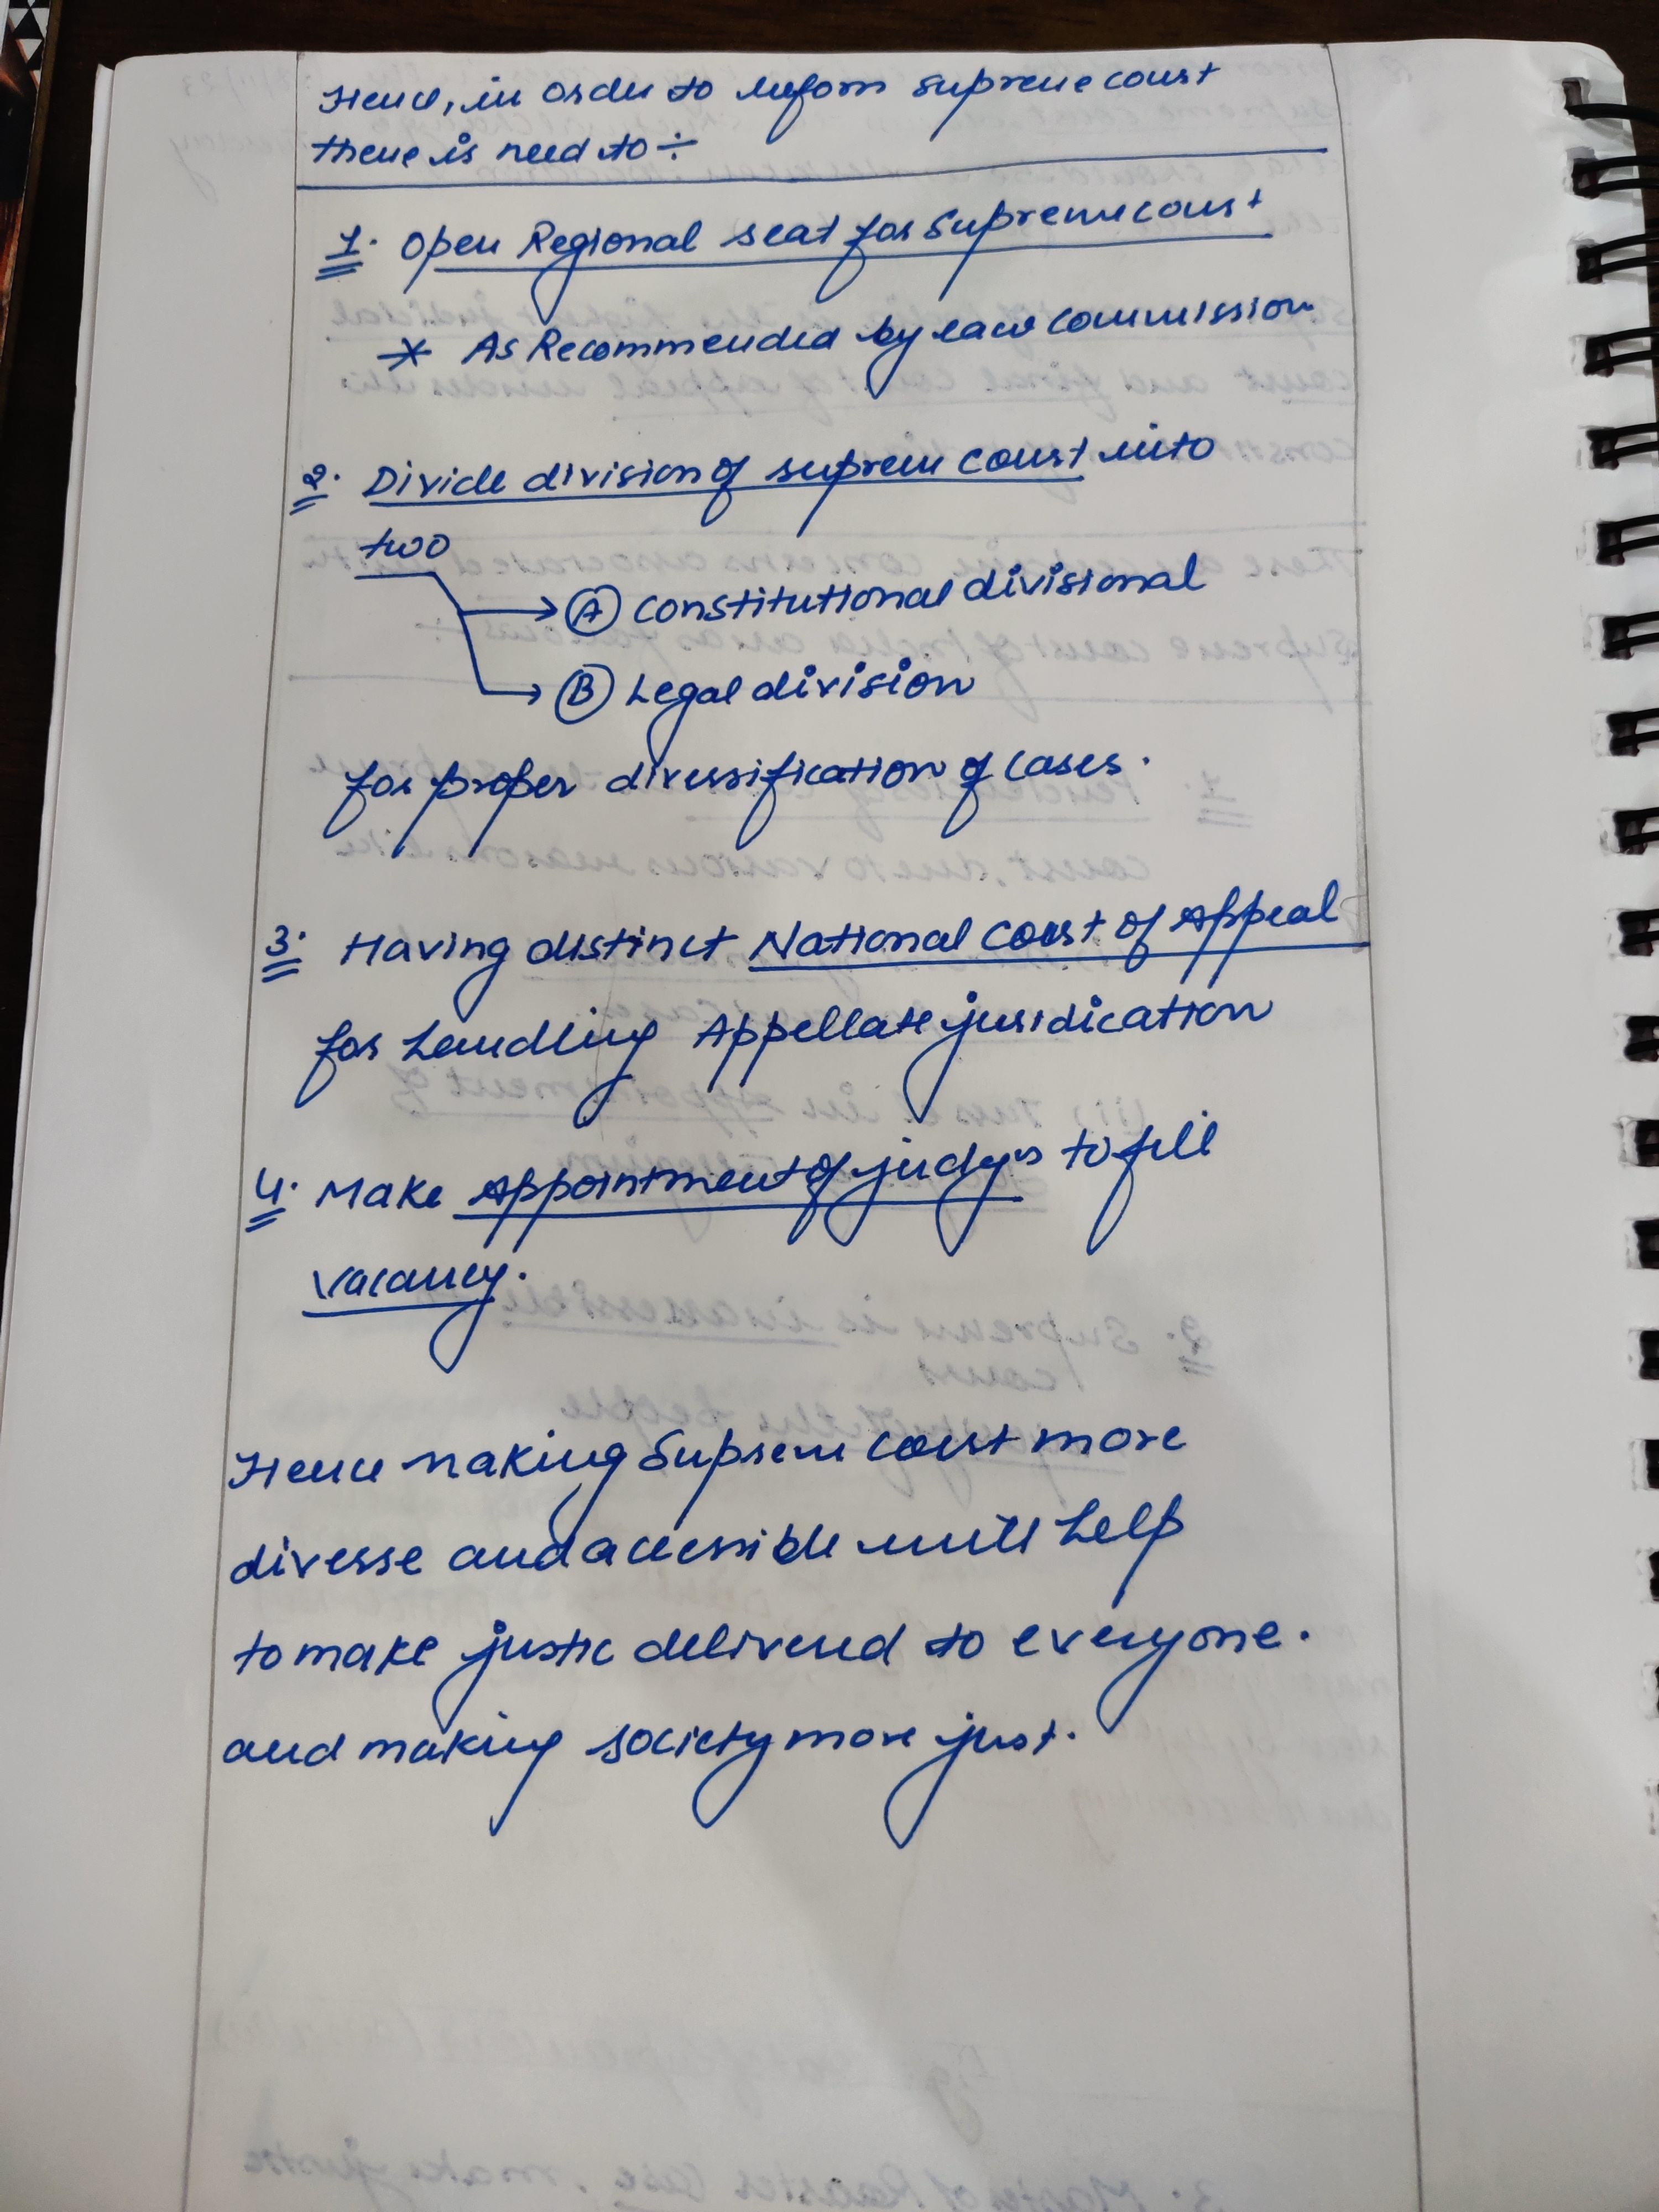 Hence, in order to reform supreme court
there is need to ÷
1. Open Regional seat for Supreme court
* As Recommended by Law Commission
2. Divide division of suprem court into
two
A constitutional divisional
B Legal division
for proper diversification of cases.
3. Having distinct National Court of Appeal
for handling Appellate jurisdication
4. Make Appointment of judges to fill
vacancy.
Hence making Suprem Court more
diverse and accessible will help
to make justic delivered to everyone.
and making society more just.